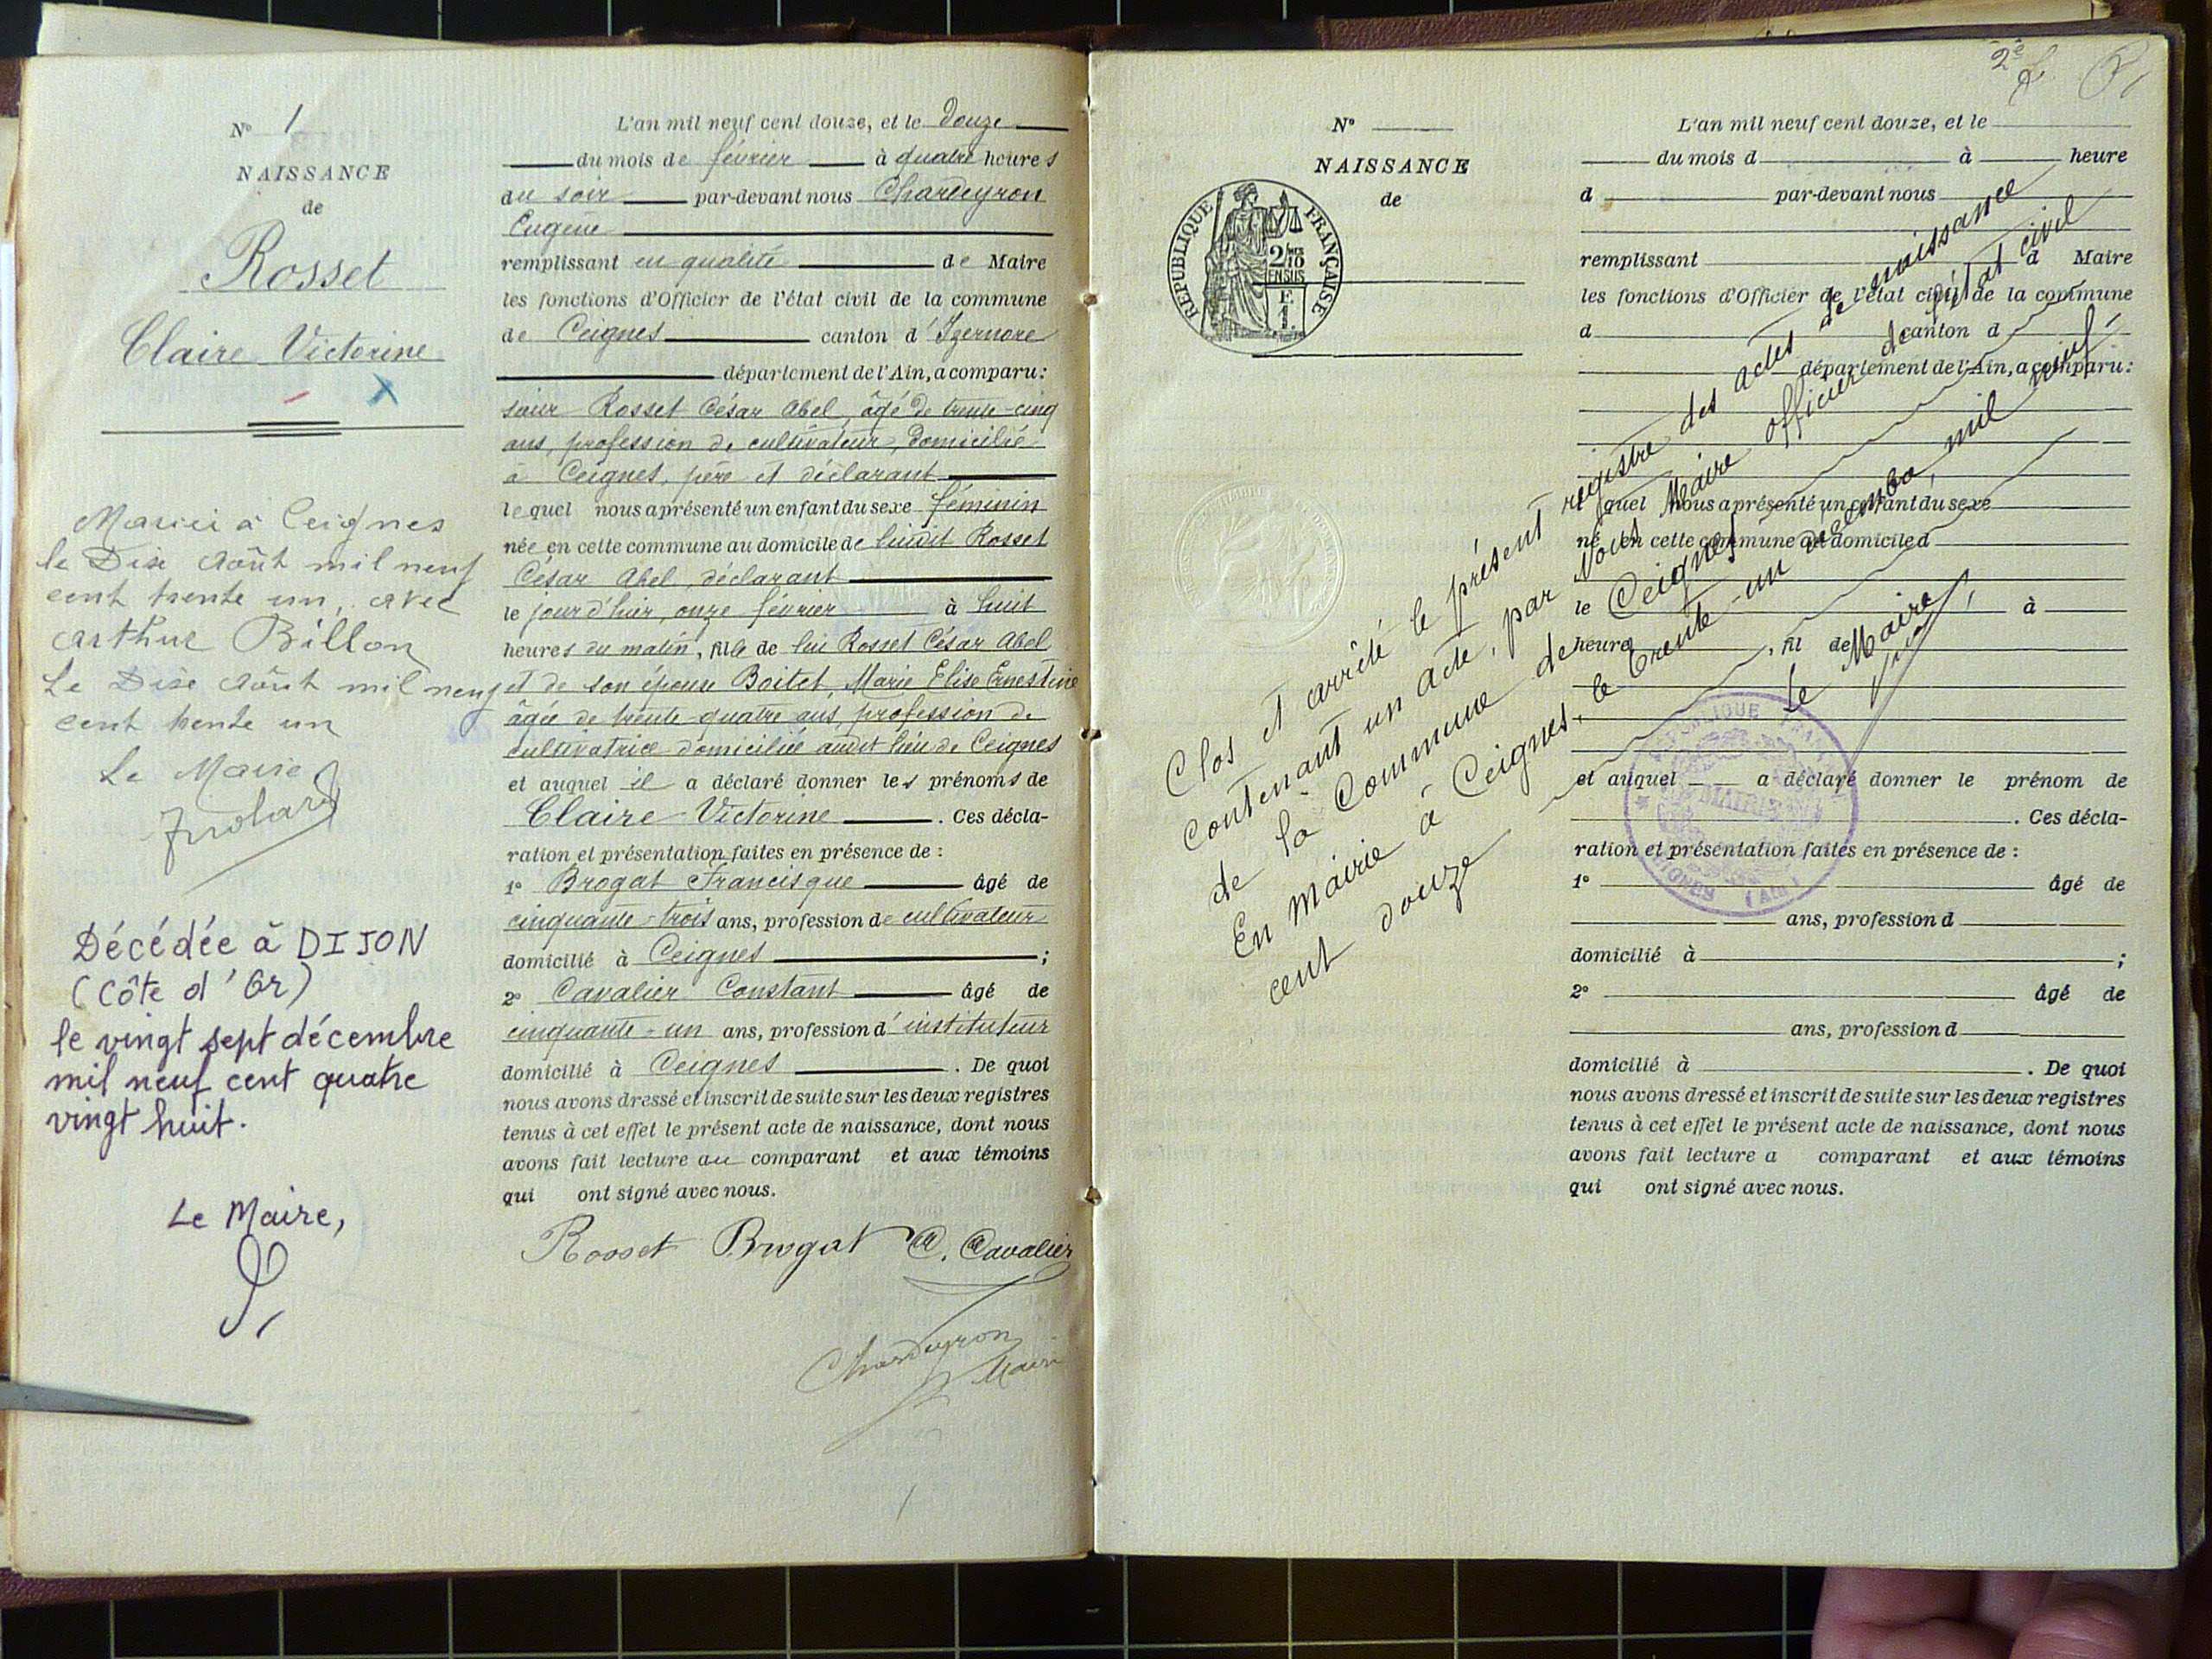 N° 1
NAISSANCE
de
Rosset
Claire Victorine
Mariée à Ceignes
le Dix Août mil neuf
cent trente un, avec
Arthur Billon
Le Dix Août mil neuf
cent trente un
Le Maire
Décédée à DIJON
(Côte d'Or)
le vingt sept décembre
mil neuf cent quatre
vingt huit.
Le Maire,
L'an mil neuf cent douze, et le douze
du mois de février à quatre heures
du soir par-devant nous Chardeyron
Eugène
remplissant en qualité de Maire
les fonctions d'Officier de l'état civil de la commune
de Ceignes canton d'Izernore
département de l'Ain, a comparu:
sieur Rosset César Abel, âgé de trente-cinq
ans, profession de cultivateur, domicilié
à Ceignes, père et déclarant
lequel nous a présenté un enfant du sexe féminin
née en cette commune au domicile de ludit Rosset
César Abel, déclarant
le jour d'hier, onze février à huit
heures du matin, fille de lui Rosset César Abel
et de son épouse Boitet, Marie Elise Ernestine
âgée de trente-quatre ans, profession de
cultivatrice domiciliée audit lieu de Ceignes
et auquel il a déclaré donner les prénoms de
Claire Victorine. Ces décla-
ration et présentation faites en présence de :
1° Brogat Francisque âgé de
cinquante-trois ans, profession de cultivateur
domicilié à Ceignes ;
2° Cavalier Constant âgé de
cinquante-un ans, profession d'instituteur
domicilié à Ceignes. De quoi
nous avons dressé et inscrit de suite sur les deux registres
tenus à cet effet le présent acte de naissance, dont nous
avons fait lecture au comparant et aux témoins
qui ont signé avec nous.
Rosset Brogat C. Cavalier
Chardeyron
Maire
2e f.
N°
NAISSANCE
de
REPUBLIQUE FRANÇAISE
2/10
EN SUS
F.
1.
L'an mil neuf cent douze, et le
du mois d à heure
d par-devant nous
remplissant d Maire
les fonctions d'Officier de l'état civil de la commune
d canton d
département de l'Ain, a comparu:
quel nous a présenté un enfant du sexe
né en cette commune au domicile d
le à
heure , fil de
et auquel a déclaré donner le prénom de
. Ces décla-
ration et présentation faites en présence de :
1° âgé de
ans, profession d
domicilié à ;
2° âgé de
ans, profession d
domicilié à . De quoi
nous avons dressé et inscrit de suite sur les deux registres
tenus à cet effet le présent acte de naissance, dont nous
avons fait lecture a comparant et aux témoins
qui ont signé avec nous.
Clos et arrêté le présent registre des actes de naissance
contenant un acte, par Nous Maire officier de l'état civil
de la Commune de Ceignes
En Mairie à Ceignes, le trente-un décembre mil neuf
cent douze
Le Maire,
MAIRIE
(AIN)